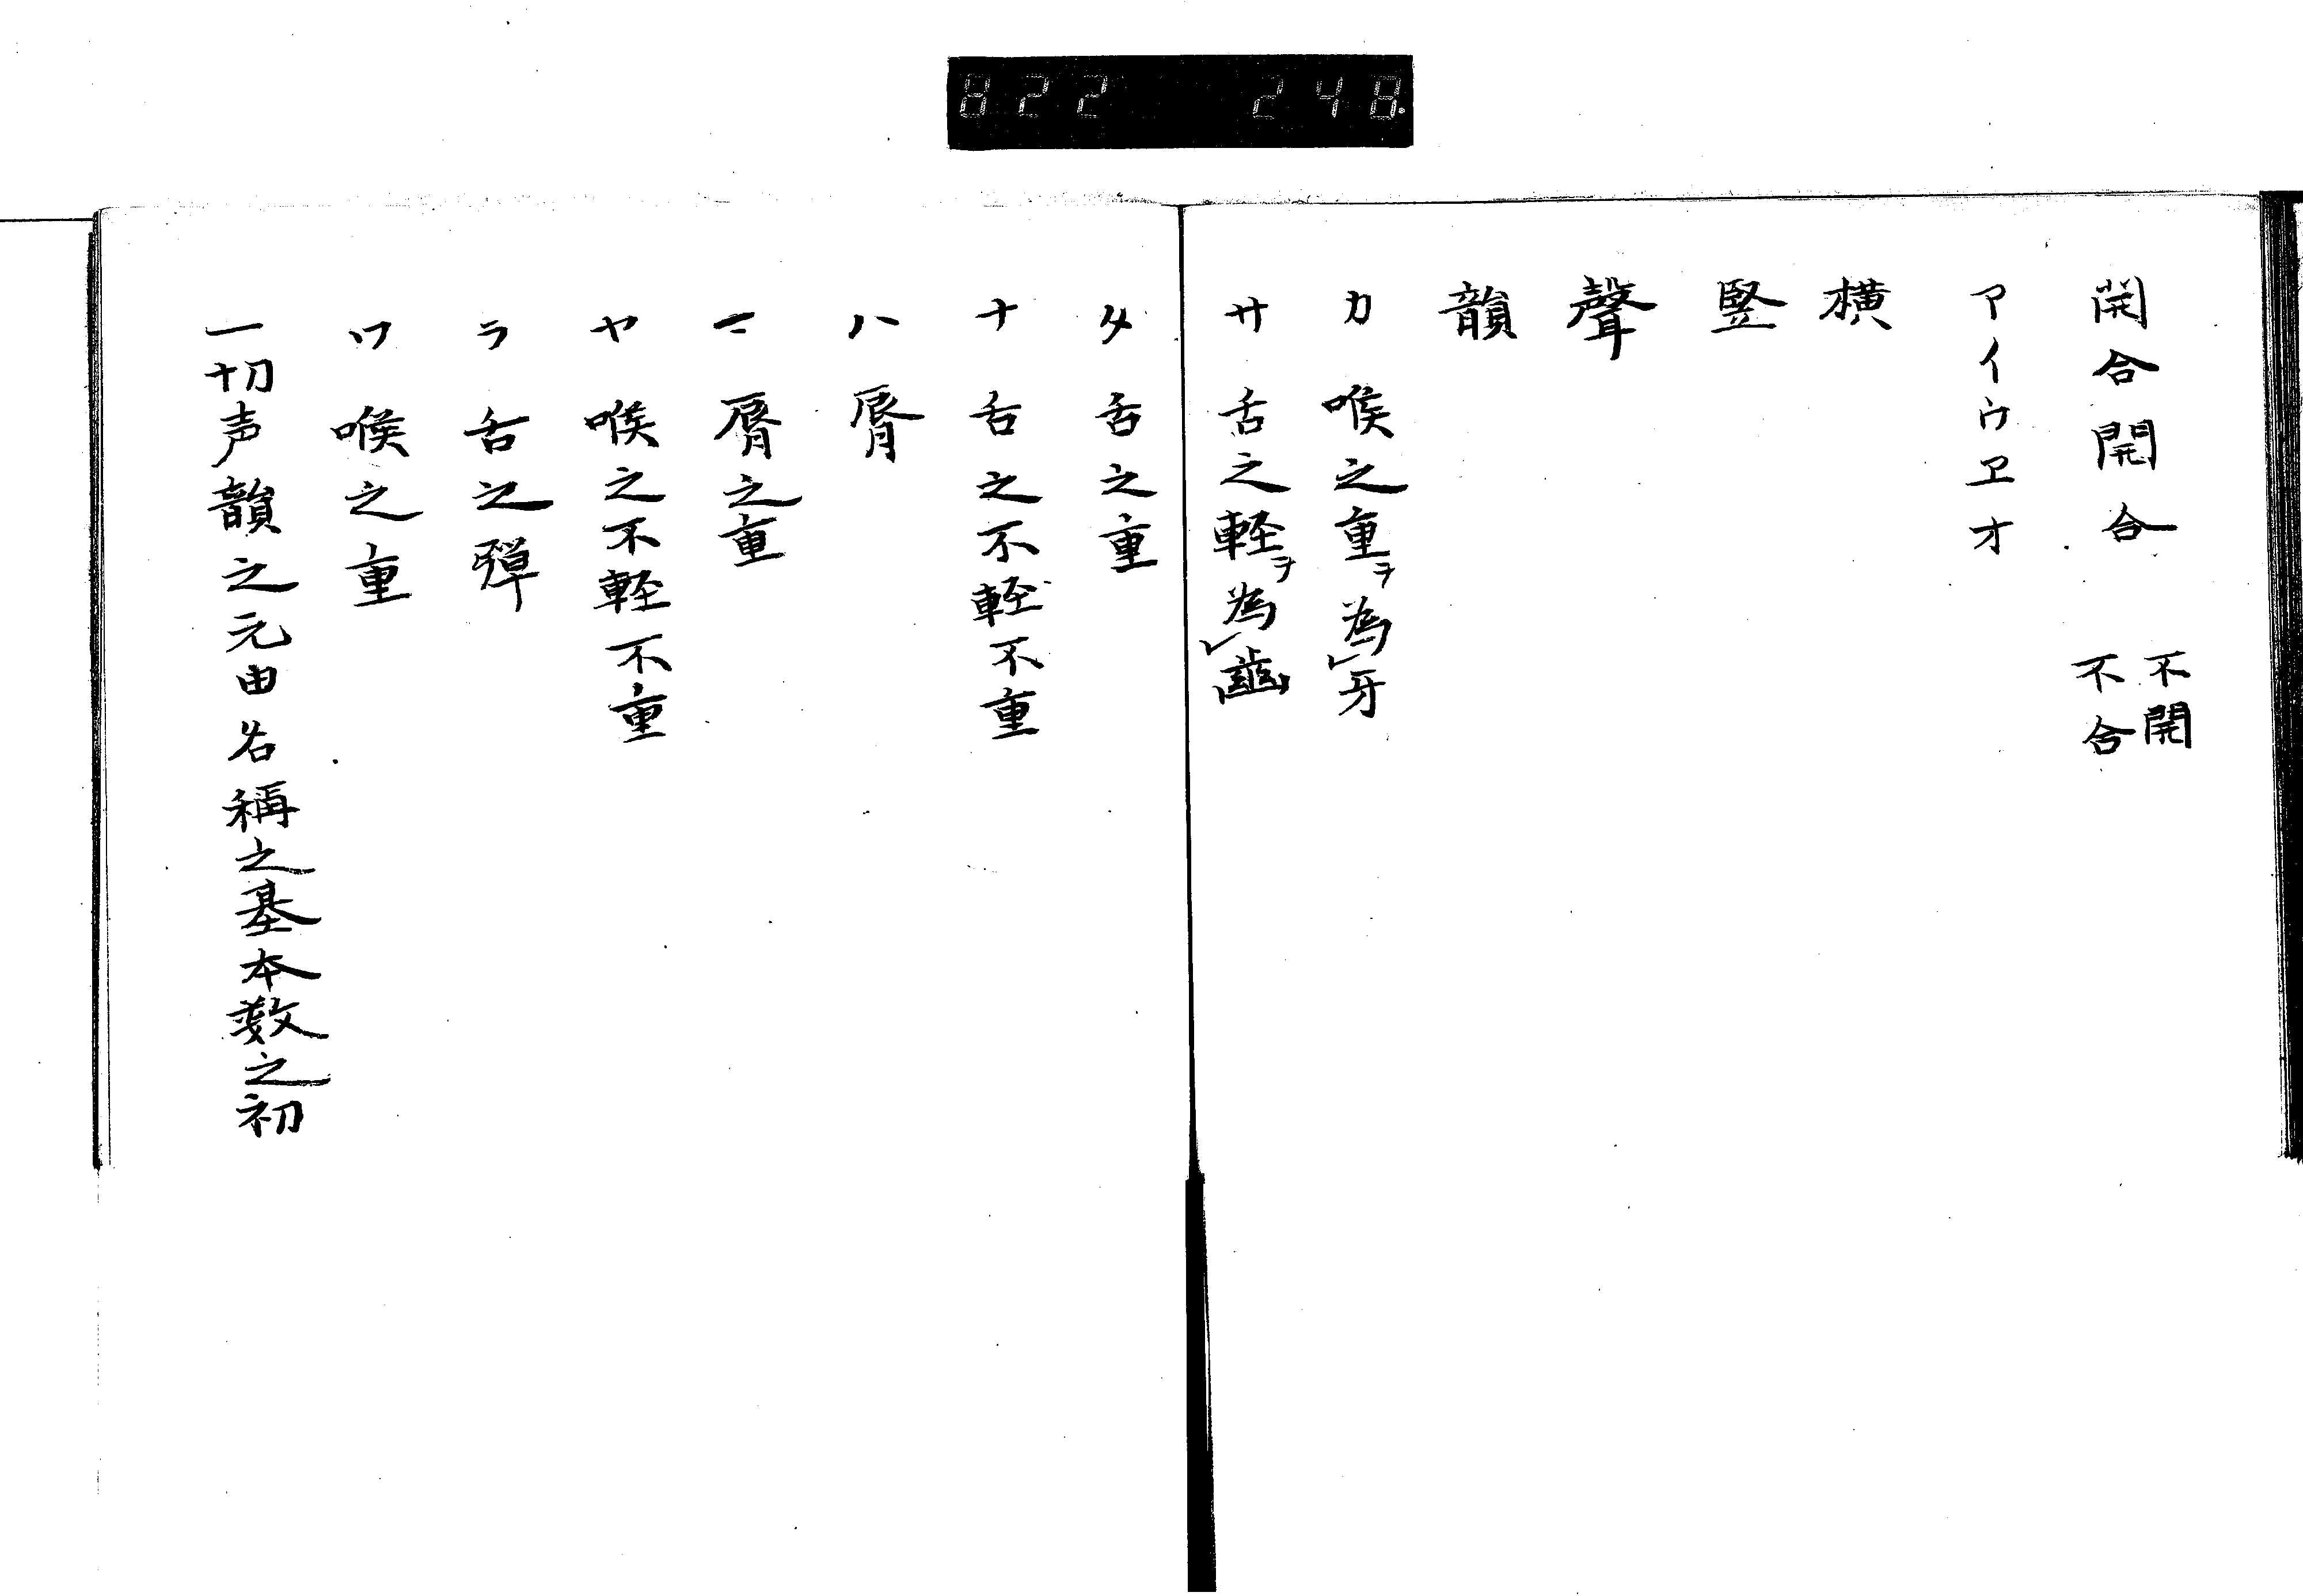 822 248
開合開合 不開 不合
アイウヱオ
横
竪
聲
韻
カ 喉之重ヲ為㆑牙
サ 舌之軽ヲ為㆑齒
タ 舌之重
ナ 舌之不軽不重
ハ 脣
マ 脣之重
ヤ 喉之不軽不重
ラ 舌之弾
ワ 喉之重
一切声韻之元由名稱之基本数之初